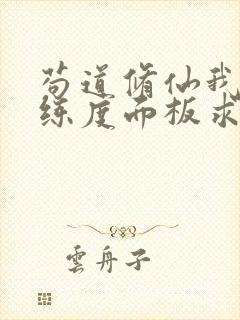 苟道修仙我
练度面板求
雲舟子